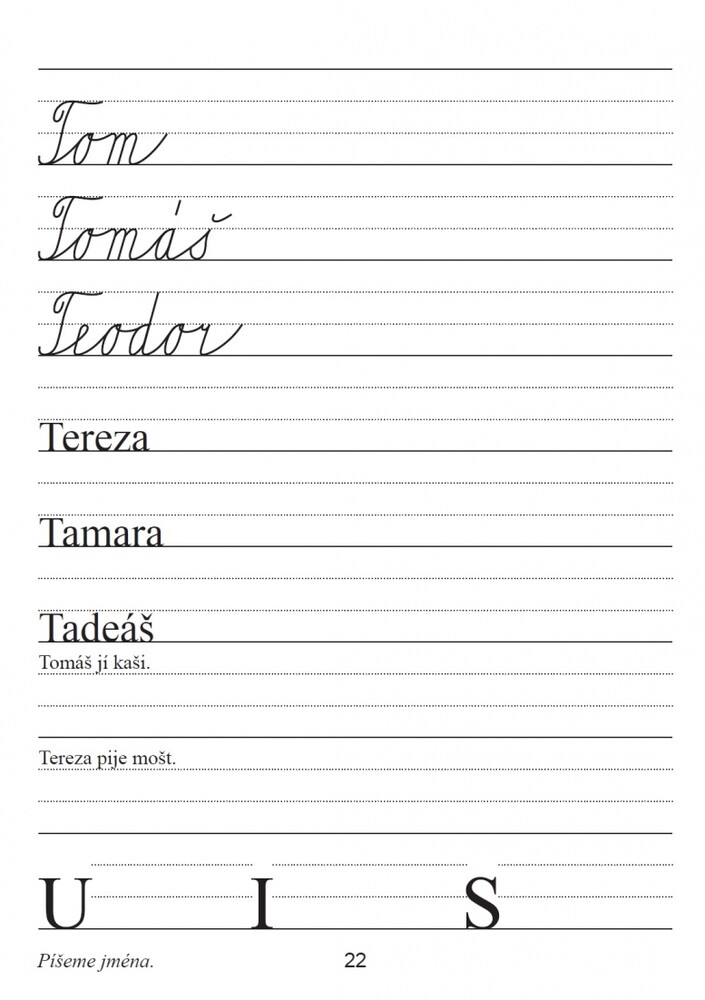 Tom
Tomáš
Teodor
Tereza
Tamara
Tadeáš
Tomáš jí kaši.
Tereza pije mošt.
U I S
Píšeme jména. 22